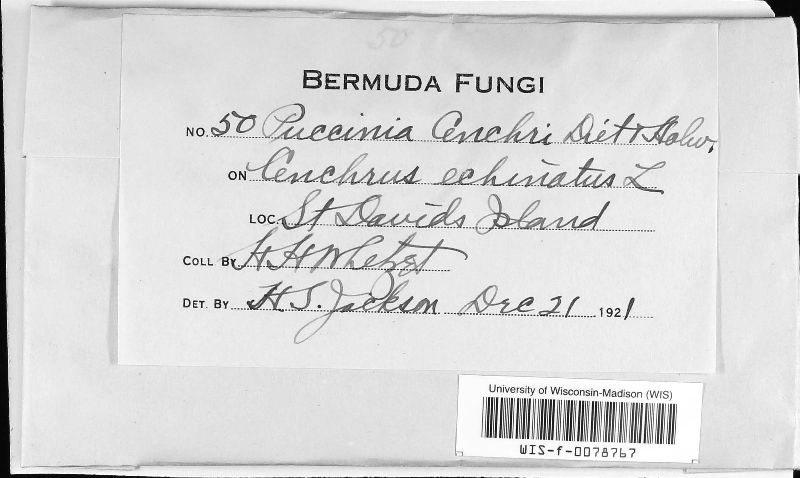 50
BERMUDA FUNGI
NO. 50 Puccinia Cenchri Diet & Holw.
ON Cenchrus echinatus L
LOC. St Davids Island
COLL BY H H Whetzel
DET. BY H. S. Jackson Dec 21 1921
University of Wisconsin-Madison (WIS)
WIS-f-0078767